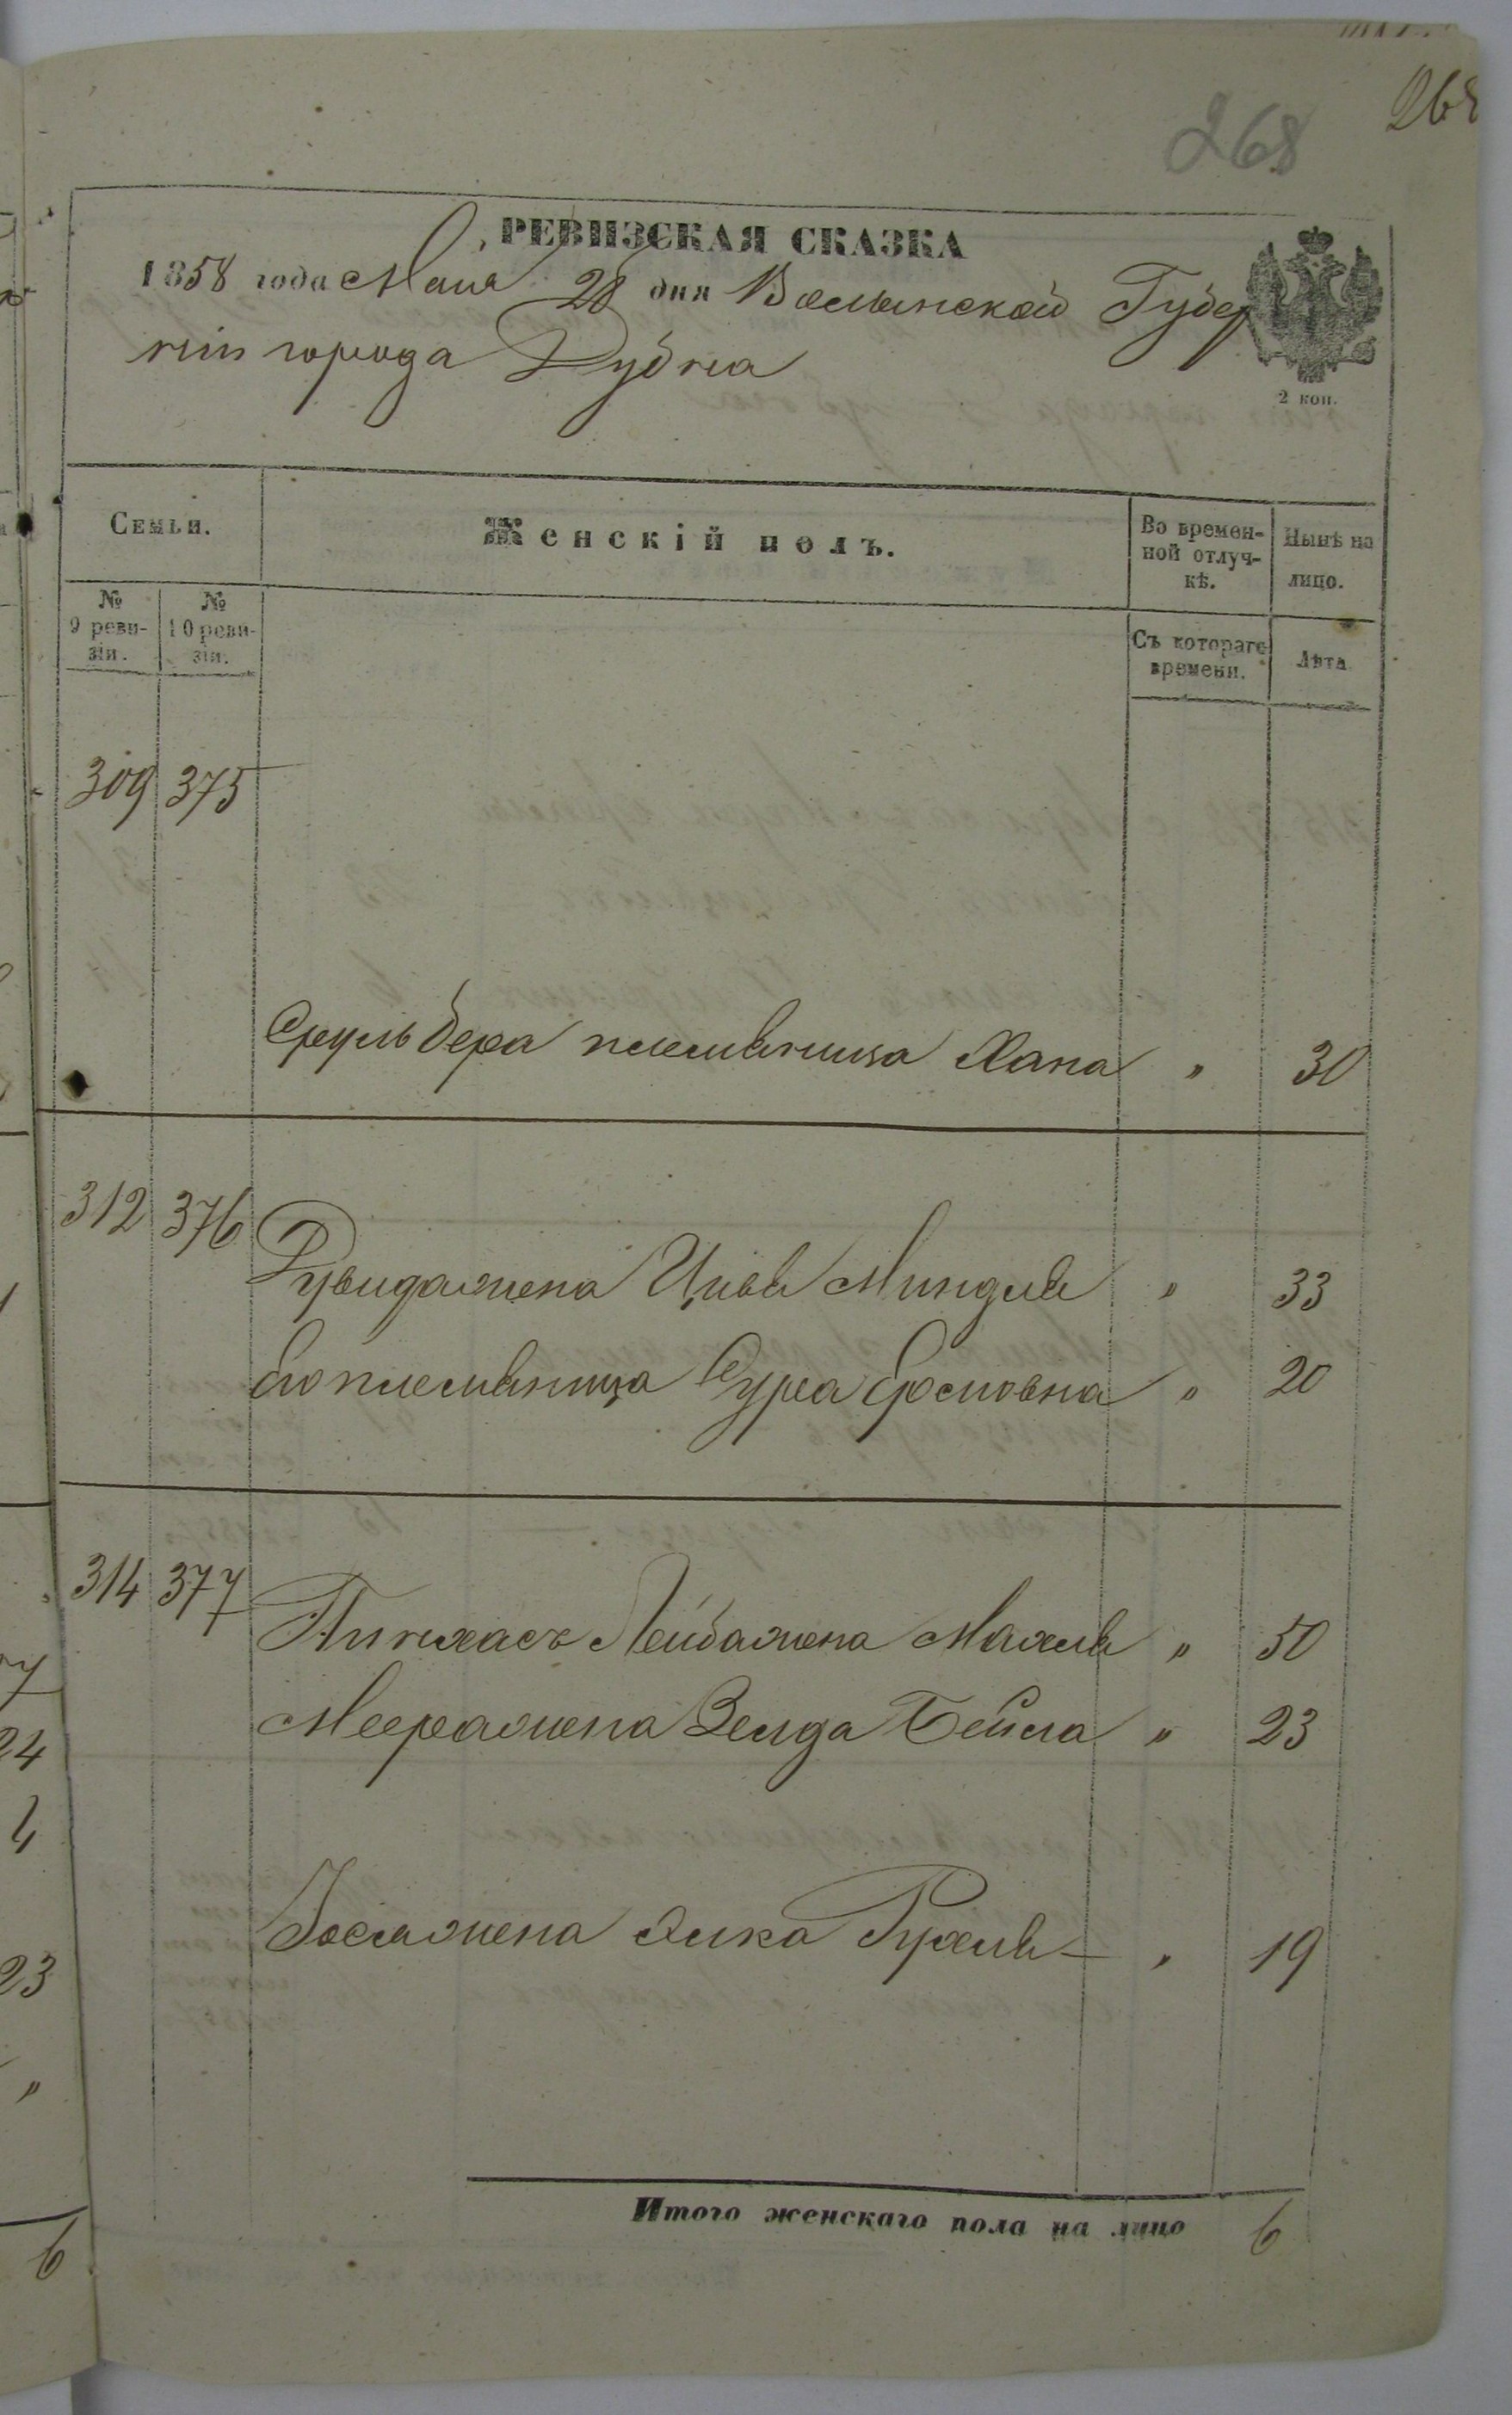 268
268
РЕВИЗСКАЯ СКАЗКА
1858 года Мая 28 дня Волынской Губер
нiи города Дубна
2 коп.
Семьи. Женскiй полъ. Во времен- Нынѣ на
ной отлуч- лицо.
кѣ.
№ № 
9 реви- 10 реви- Съ котораго Лѣта
зiи. зiи. времени.
309 375
Сруль Бера племянница Хана " 30
312 376
Рувида жена Цивя Миндля " 33
Его племянница Сура Иосиовна " 20
314 377
Пинхасъ Лейба жена Махля " 50
Меера жена Зелда Бейла " 23
Иосла жена Элка Рухля " 19
Итого женскаго пола на лицо 6
24
23
"
6